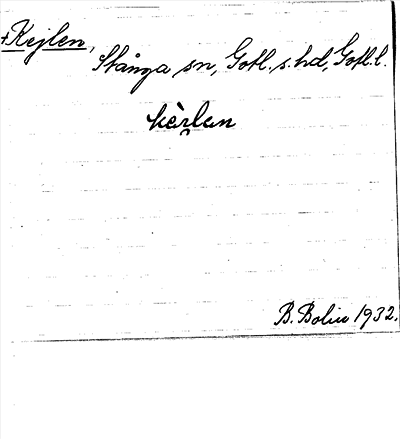 +Kejlen,
Stånga sn, Gotl. s. hd, Gotl. l.
kèr̯len
B. Bolin 1932.